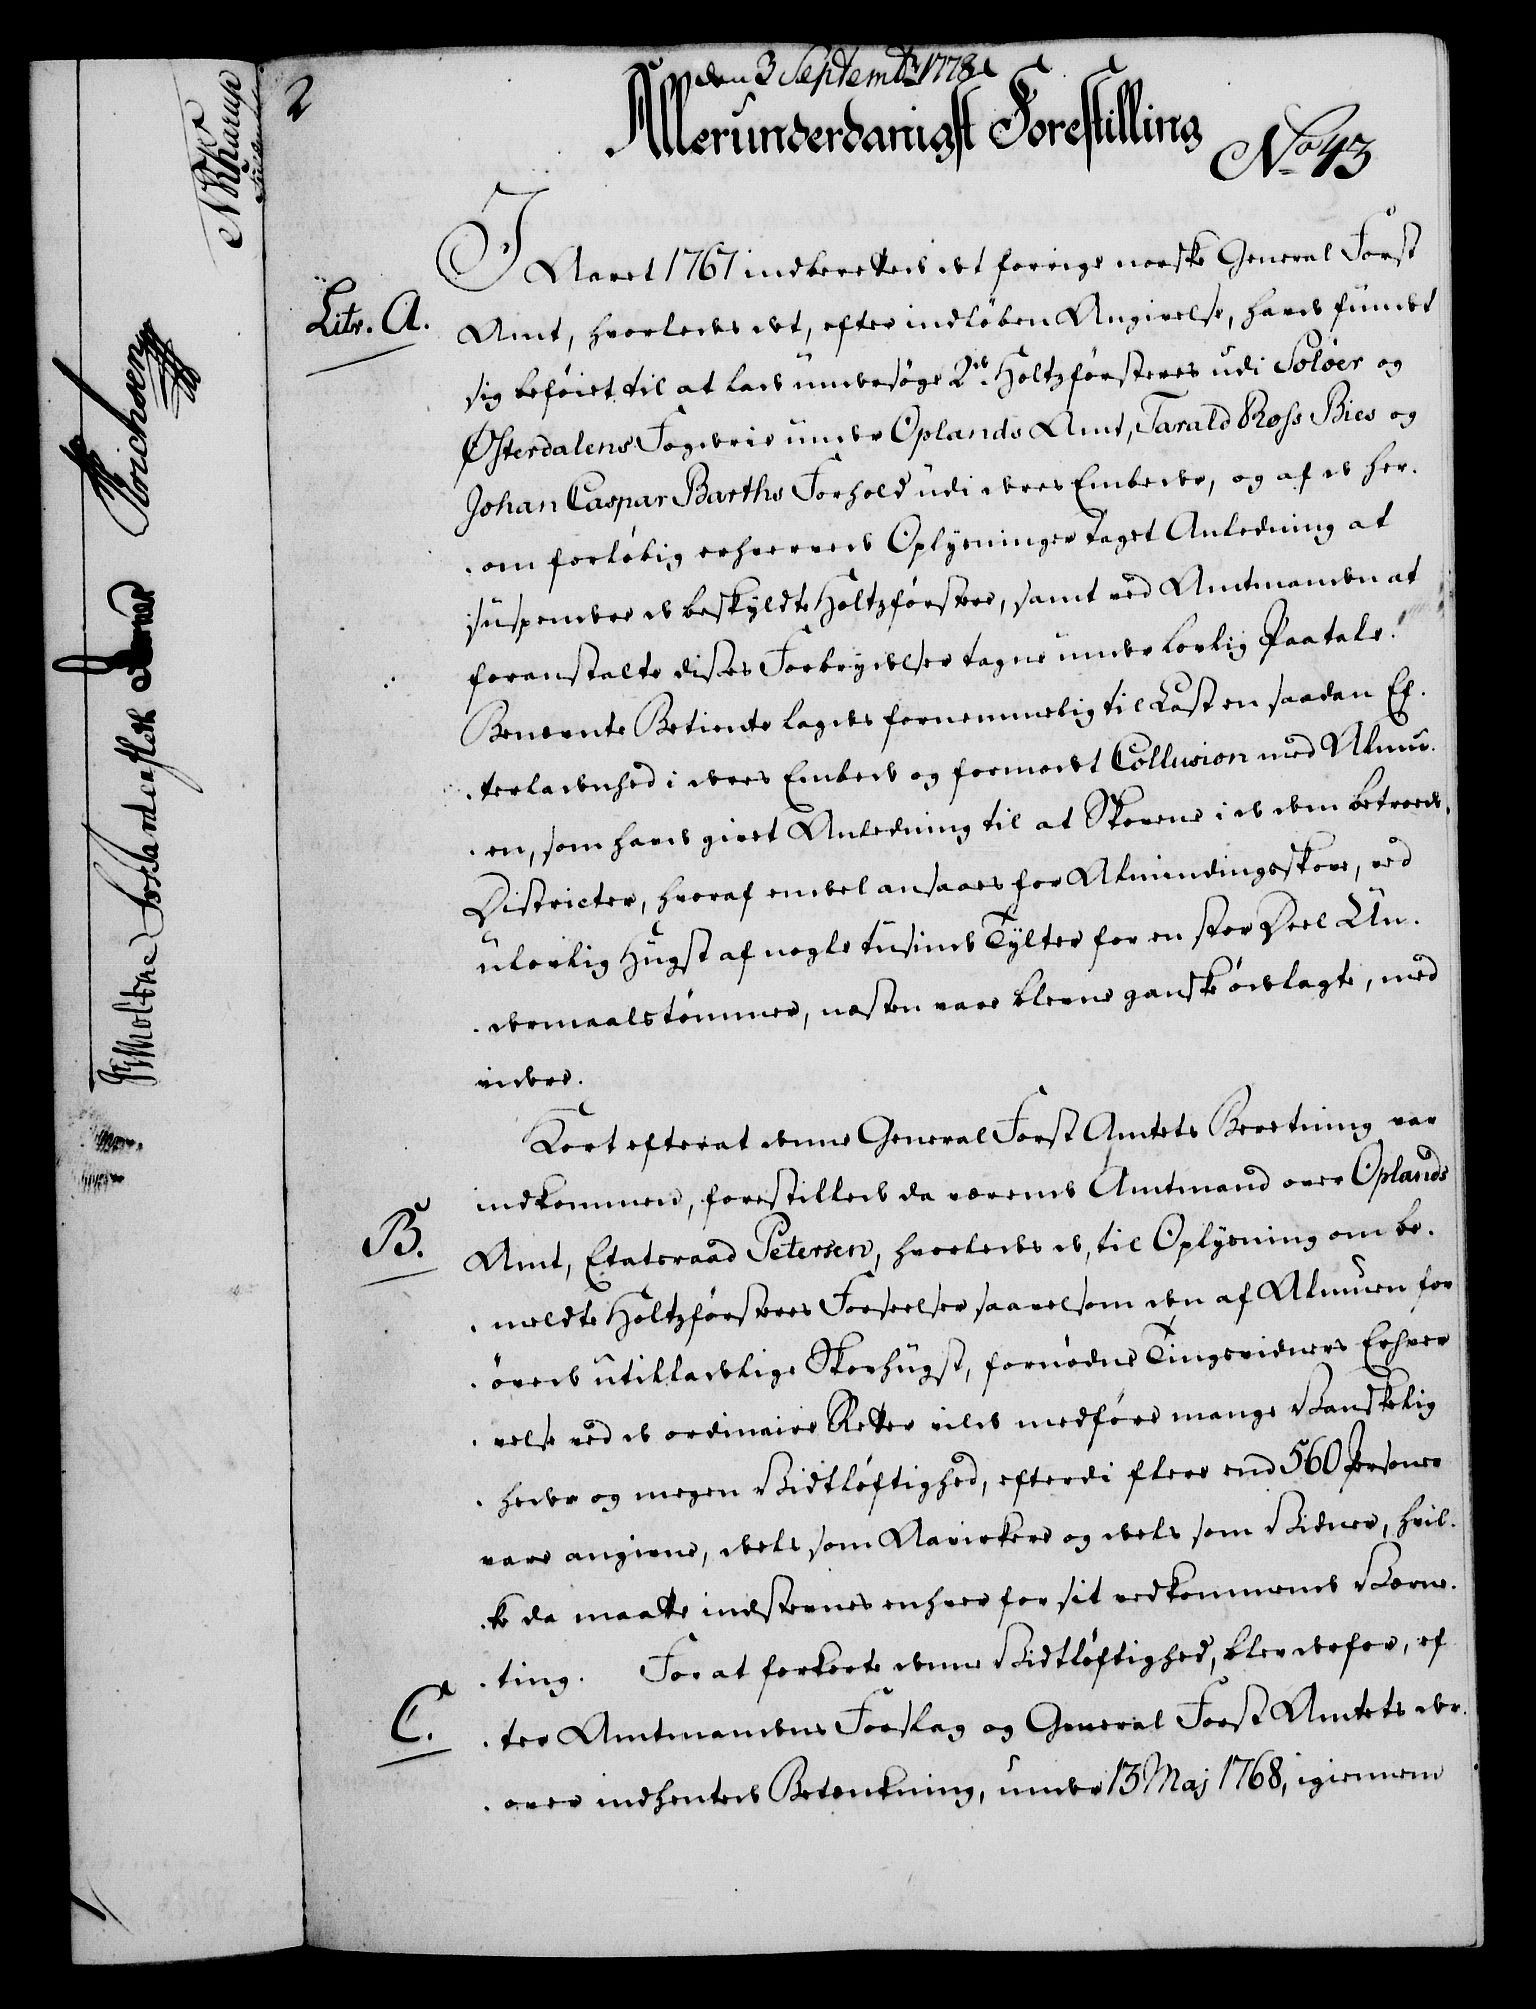 2
den 3 Septembr 1778
Allerunderdanigst Forestilling
No 43
Litr. A.
I Aaret 1767 indberettede det forrige norske General Forst
Amt, hvorledes det, efter indløben Angivelse, havde fundet
sig beføiet til at lade undersøge 2de Holtzførsteres udi Soløer og
Østerdalens Fogderie under Oplands Amt, Tarald Ross Bies og
Johan Caspar Barths Forhold udi deres Embeder, og af de her-
-om forløbig erhvervede Oplysninger taget Anledning at
suspendere de beskyldte Holtzførstere, samt ved Amtmanden at
foranstalte disses Forbrydelser tagne under lovlig Paatale.
Benevnte Betiente lagdes fornemmelig til Last en saadan Ef-
-terladenhed i deres Embede og formodet Collusion med Almu-
-en, som havde givet Anledning til at Skovene i de dem betroede
Districter, hvoraf endeel ansaaes for Almindingsskove, ved
ulovlig Hugst af nogle tusinde Tylter for en stor Deel Un-
-dermaalstømmer, næsten vare blevne ganske ødelagte, med
videre.
Kort efterat denne General Forst Amtets Beretning var
indkommen, forestillede da værende Amtmand over Oplands
B.
Amt, Etatsraad Petersen, hvorledes de, til Oplysning om be-
-meldte Holtzførsteres Forseelser saavelsom den af Almuen for
-øvede utilladelige Skovhugst, fornødne Tingsvidners Erhver
-velse ved de ordinaire Retter vilde medføre mange Vanskelig
-heder og megen Vidtløftighed, efterdi flere end 560 Personer
vare angivne, deels som Aavirkere og deels som Vidner, hvil-
-ke da maatte indstevnes enhver for sit vedkommende Værne-
-ting. For at forkorte denne Vidtløftighed, blev derfor, ef
C.
-ter Amtmandens Forslag og General Forst Amtets der-
-over indhentede Betænkning, under 13 Maj 1768, igiennem